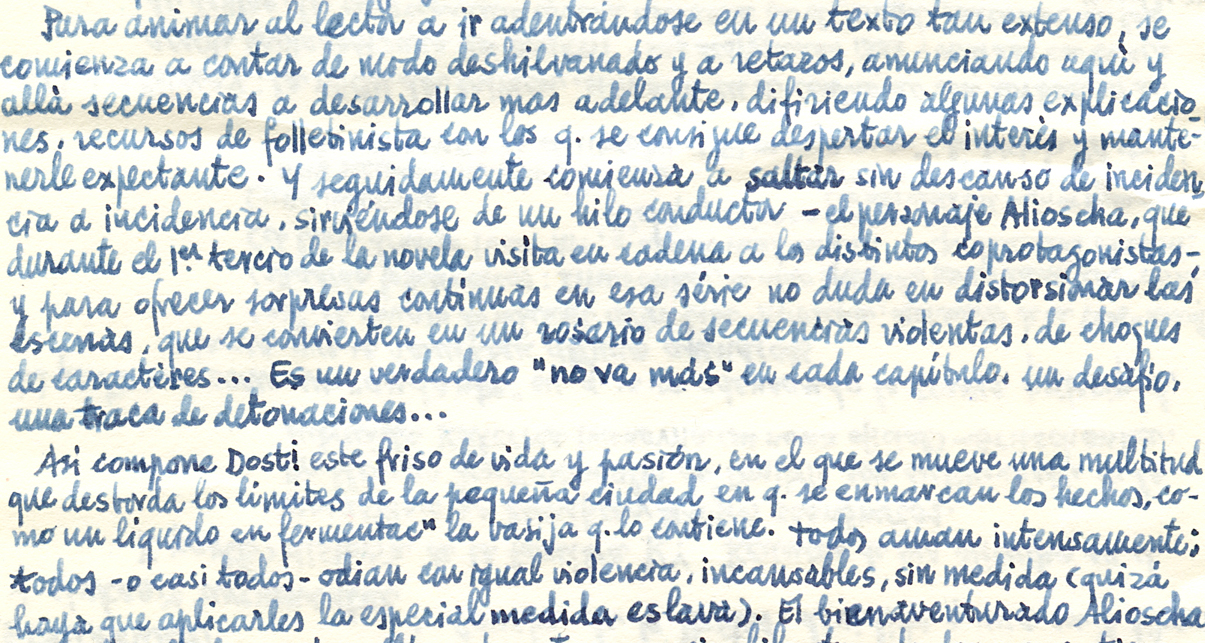 Para animar al lector a ir adentrándose en un texto tan extenso, se
comienza a contar de modo deshilvanado y a retazos, anunciando aquí y
allá secuencias a desarrollar mas adelante, difiriendo algunas explicacio
nes, recursos de folletinista con los q. se consigue despertar el interés y mante-
nerle expectante. Y seguidamente comienza a saltar sin descanso de inciden
cia a incidencia, sirviéndose de un hilo conductor - el personaje Alioscha, que
durante el 1.er tercio de la novela visita en cadena a los distintos coprotagonistas -,
y para ofrecer sorpresas contínuas en esa série no duda en distorsionar las
escenas, que se convierten en un rosario de secuencias violentas, de choques
de caractéres... Es un verdadero "no va más" en cada capítulo, un desafío,
una traca de detonaciones...
Asi compone Dosti este friso de vida y pasión, en el que se mueve una multitud
que desborda los límites de la pequeña ciudad en q. se enmarcan los hechos, co-
mo un líquido en fermentac" la vasija q. lo contiene. Todos aman intensamente;
todos - o casi todos - odian con igual violencia, incansables, sin medida (quizá
haya que aplicarles la especial medida eslava). El bienaventurado Alioscha